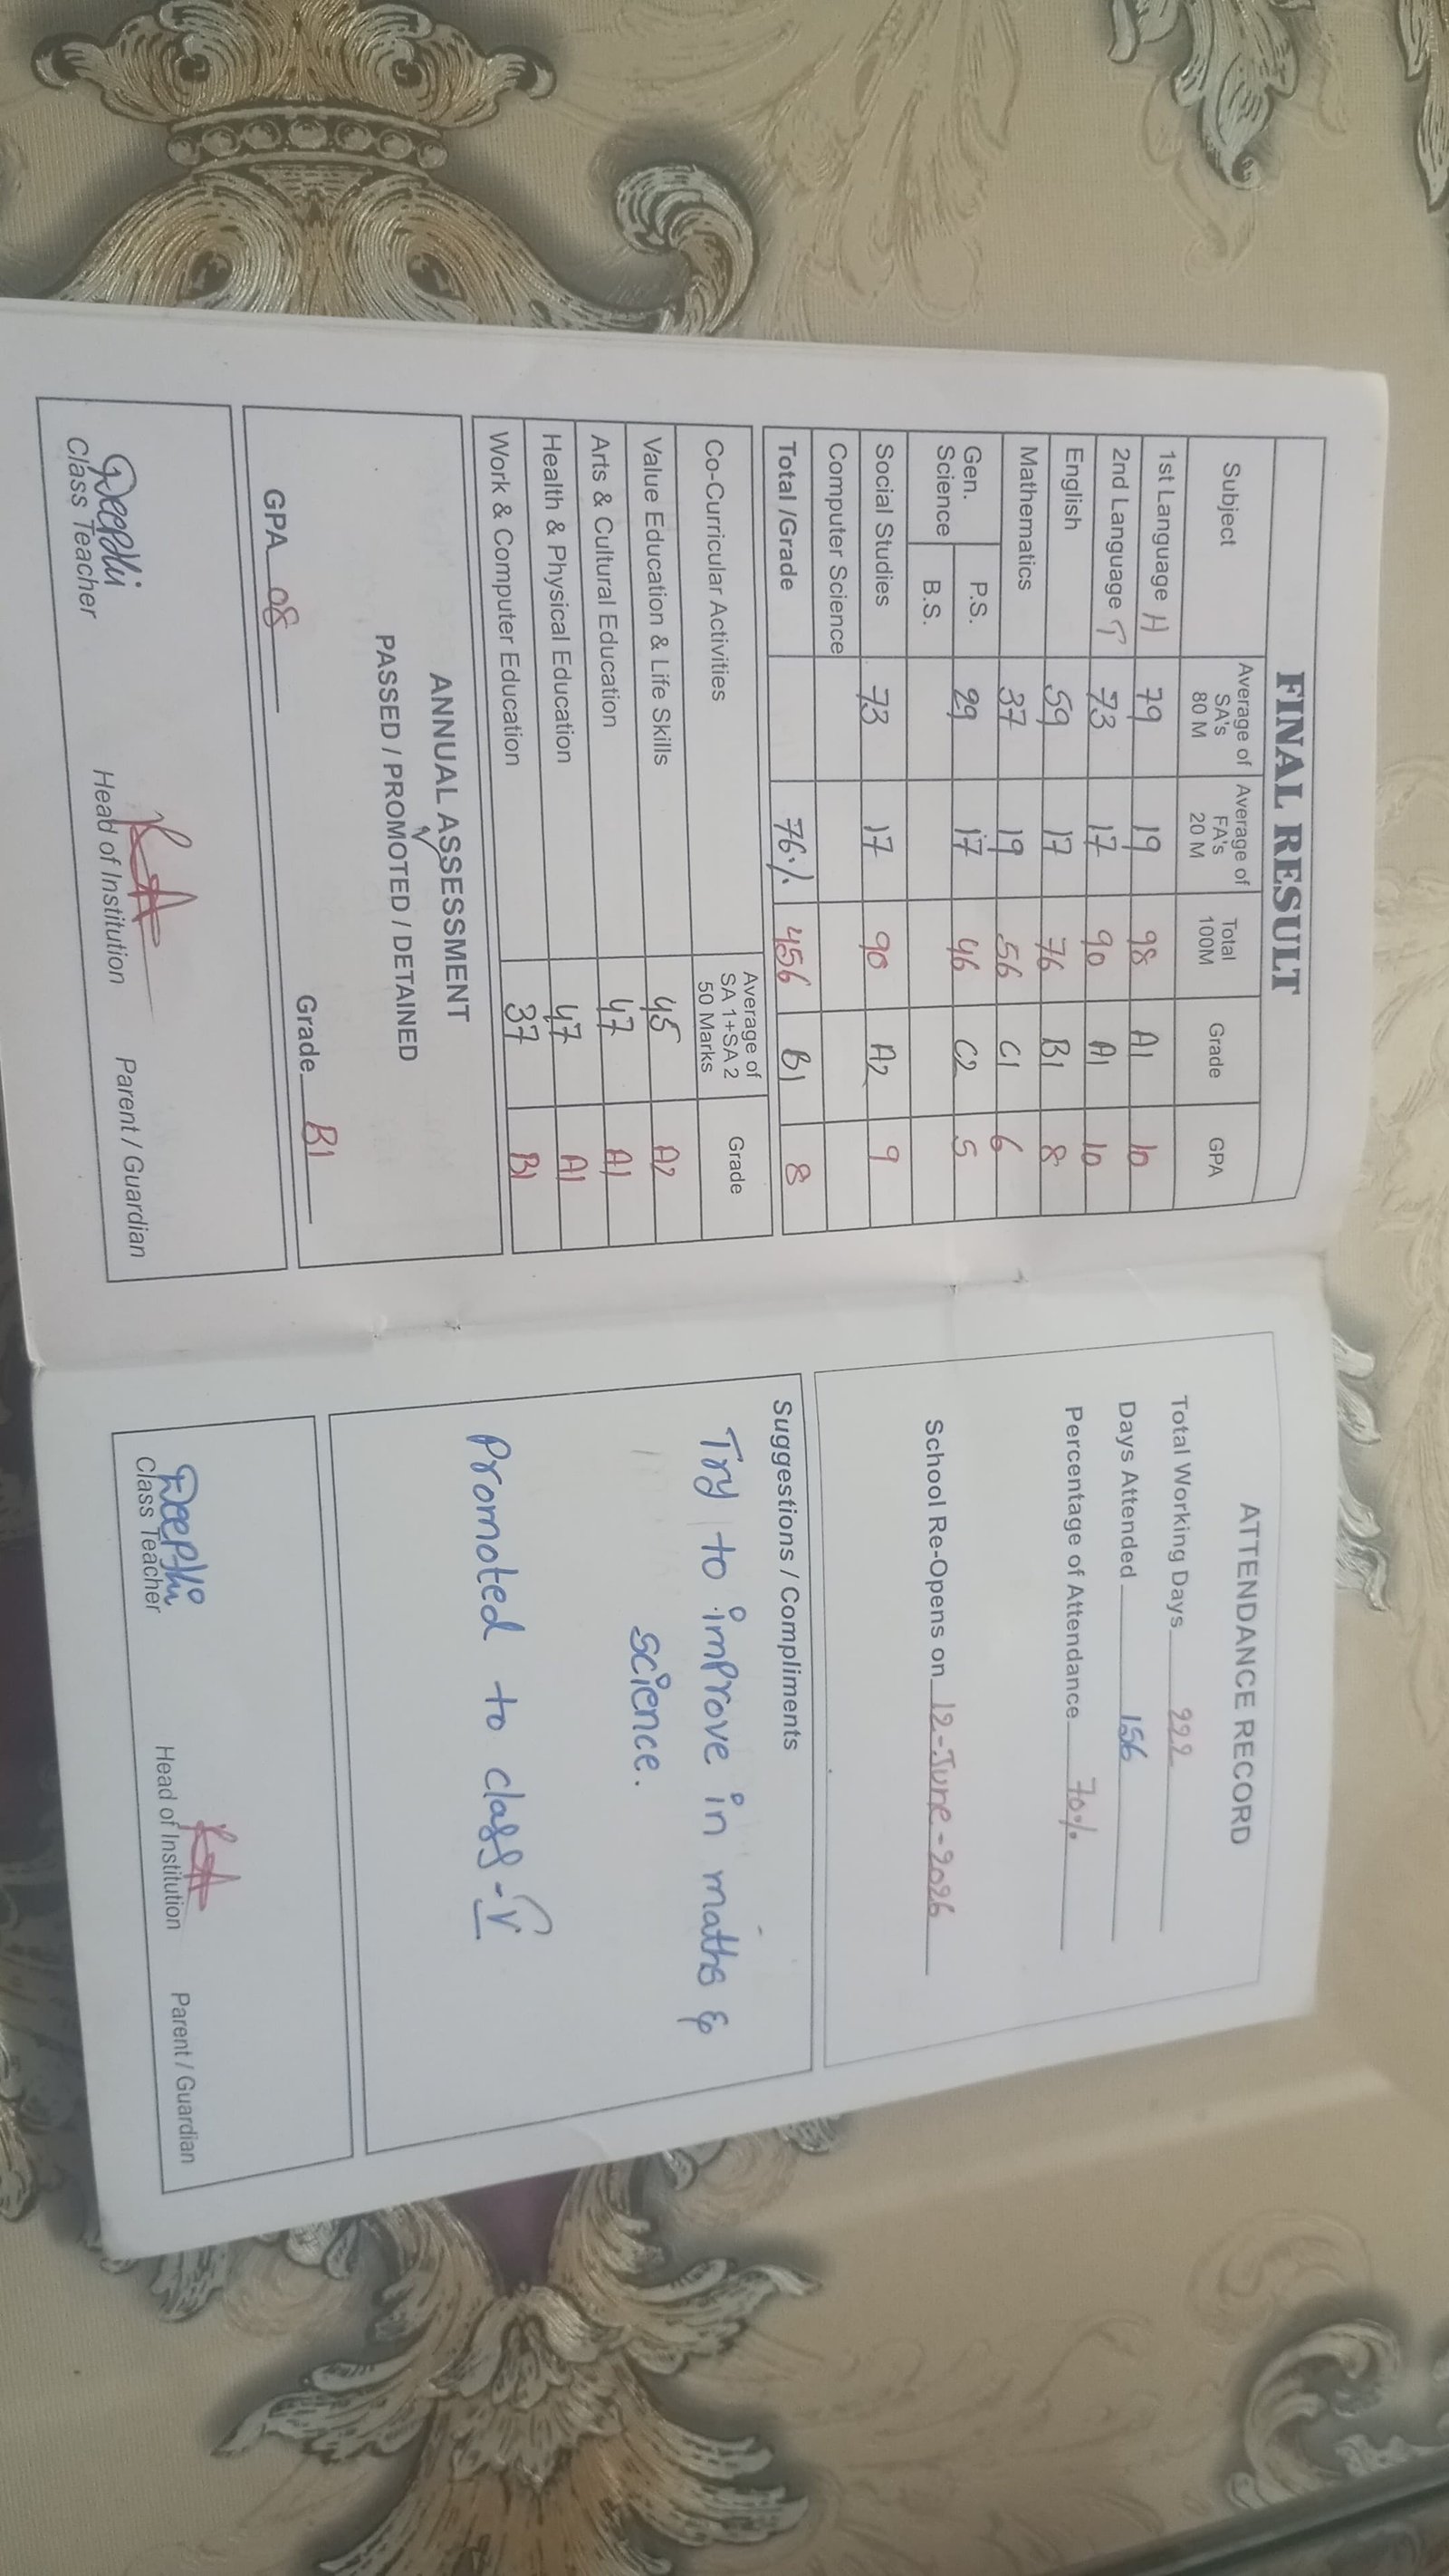 FINAL RESULT
Subject Average of SA's 80 M Average of FA's 20 M Total 100M Grade GPA
1st Language H 79 19 98 A1 10
2nd Language T 73 17 90 A1 10
English 59 17 76 B1 8
Mathematics 37 19 56 C1 6
Gen. Science P.S. 29 17 46 C2 5
B.S.
Social Studies 73 17 90 A2 9
Computer Science
Total /Grade 76% 456 B1 8
Co-Curricular Activities Average of SA 1+SA 2 50 Marks Grade
Value Education & Life Skills 45 A2
Arts & Cultural Education 47 A1
Health & Physical Education 47 A1
Work & Computer Education 37 B1
ANNUAL ASSESSMENT
PASSED / PROMOTED / DETAINED
GPA 08 Grade B1
Deepthi
Class Teacher Head of Institution Parent / Guardian
ATTENDANCE RECORD
Total Working Days 222
Days Attended 156
Percentage of Attendance 70%
School Re-Opens on 12-June-2026
Suggestions / Compliments
Try to improve in maths &
science.
Promoted to class - V
Deepthi
Class Teacher Head of Institution Parent / Guardian